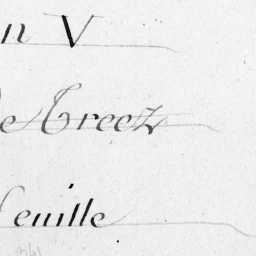 n V
e Creez
euille